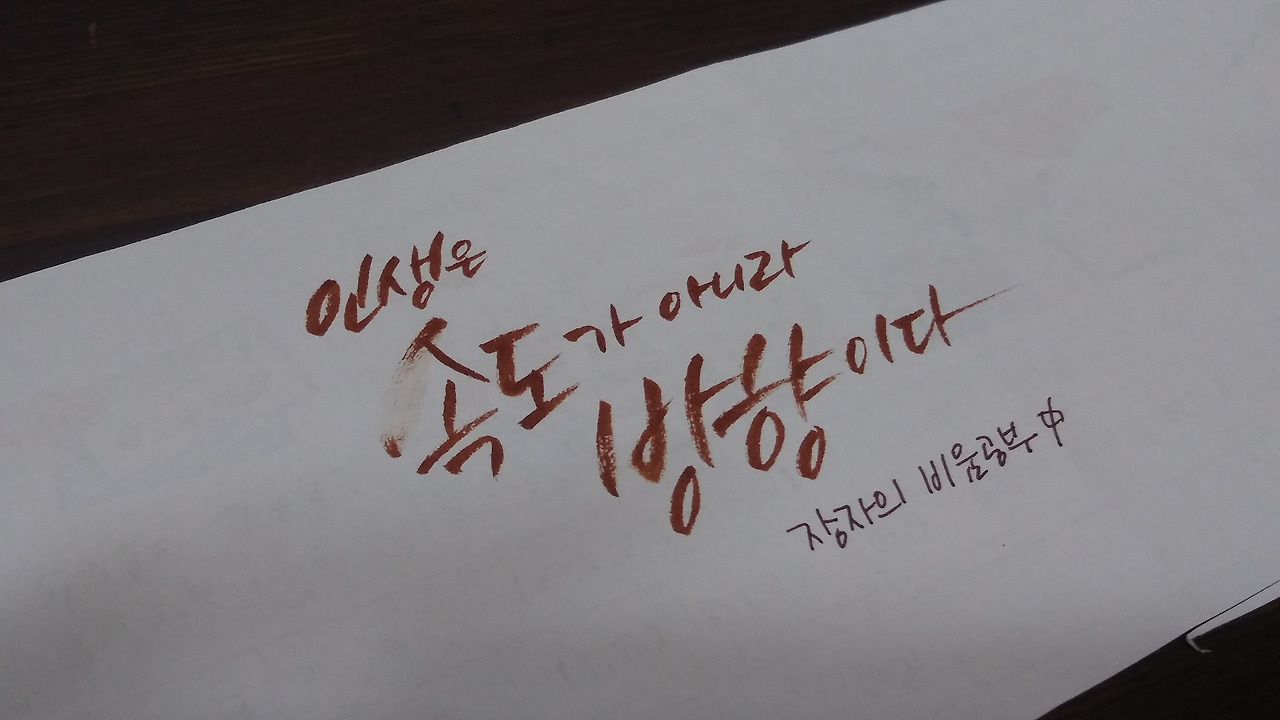 인생은
속도가 아니라
방향이다
장자의 비움공부 中